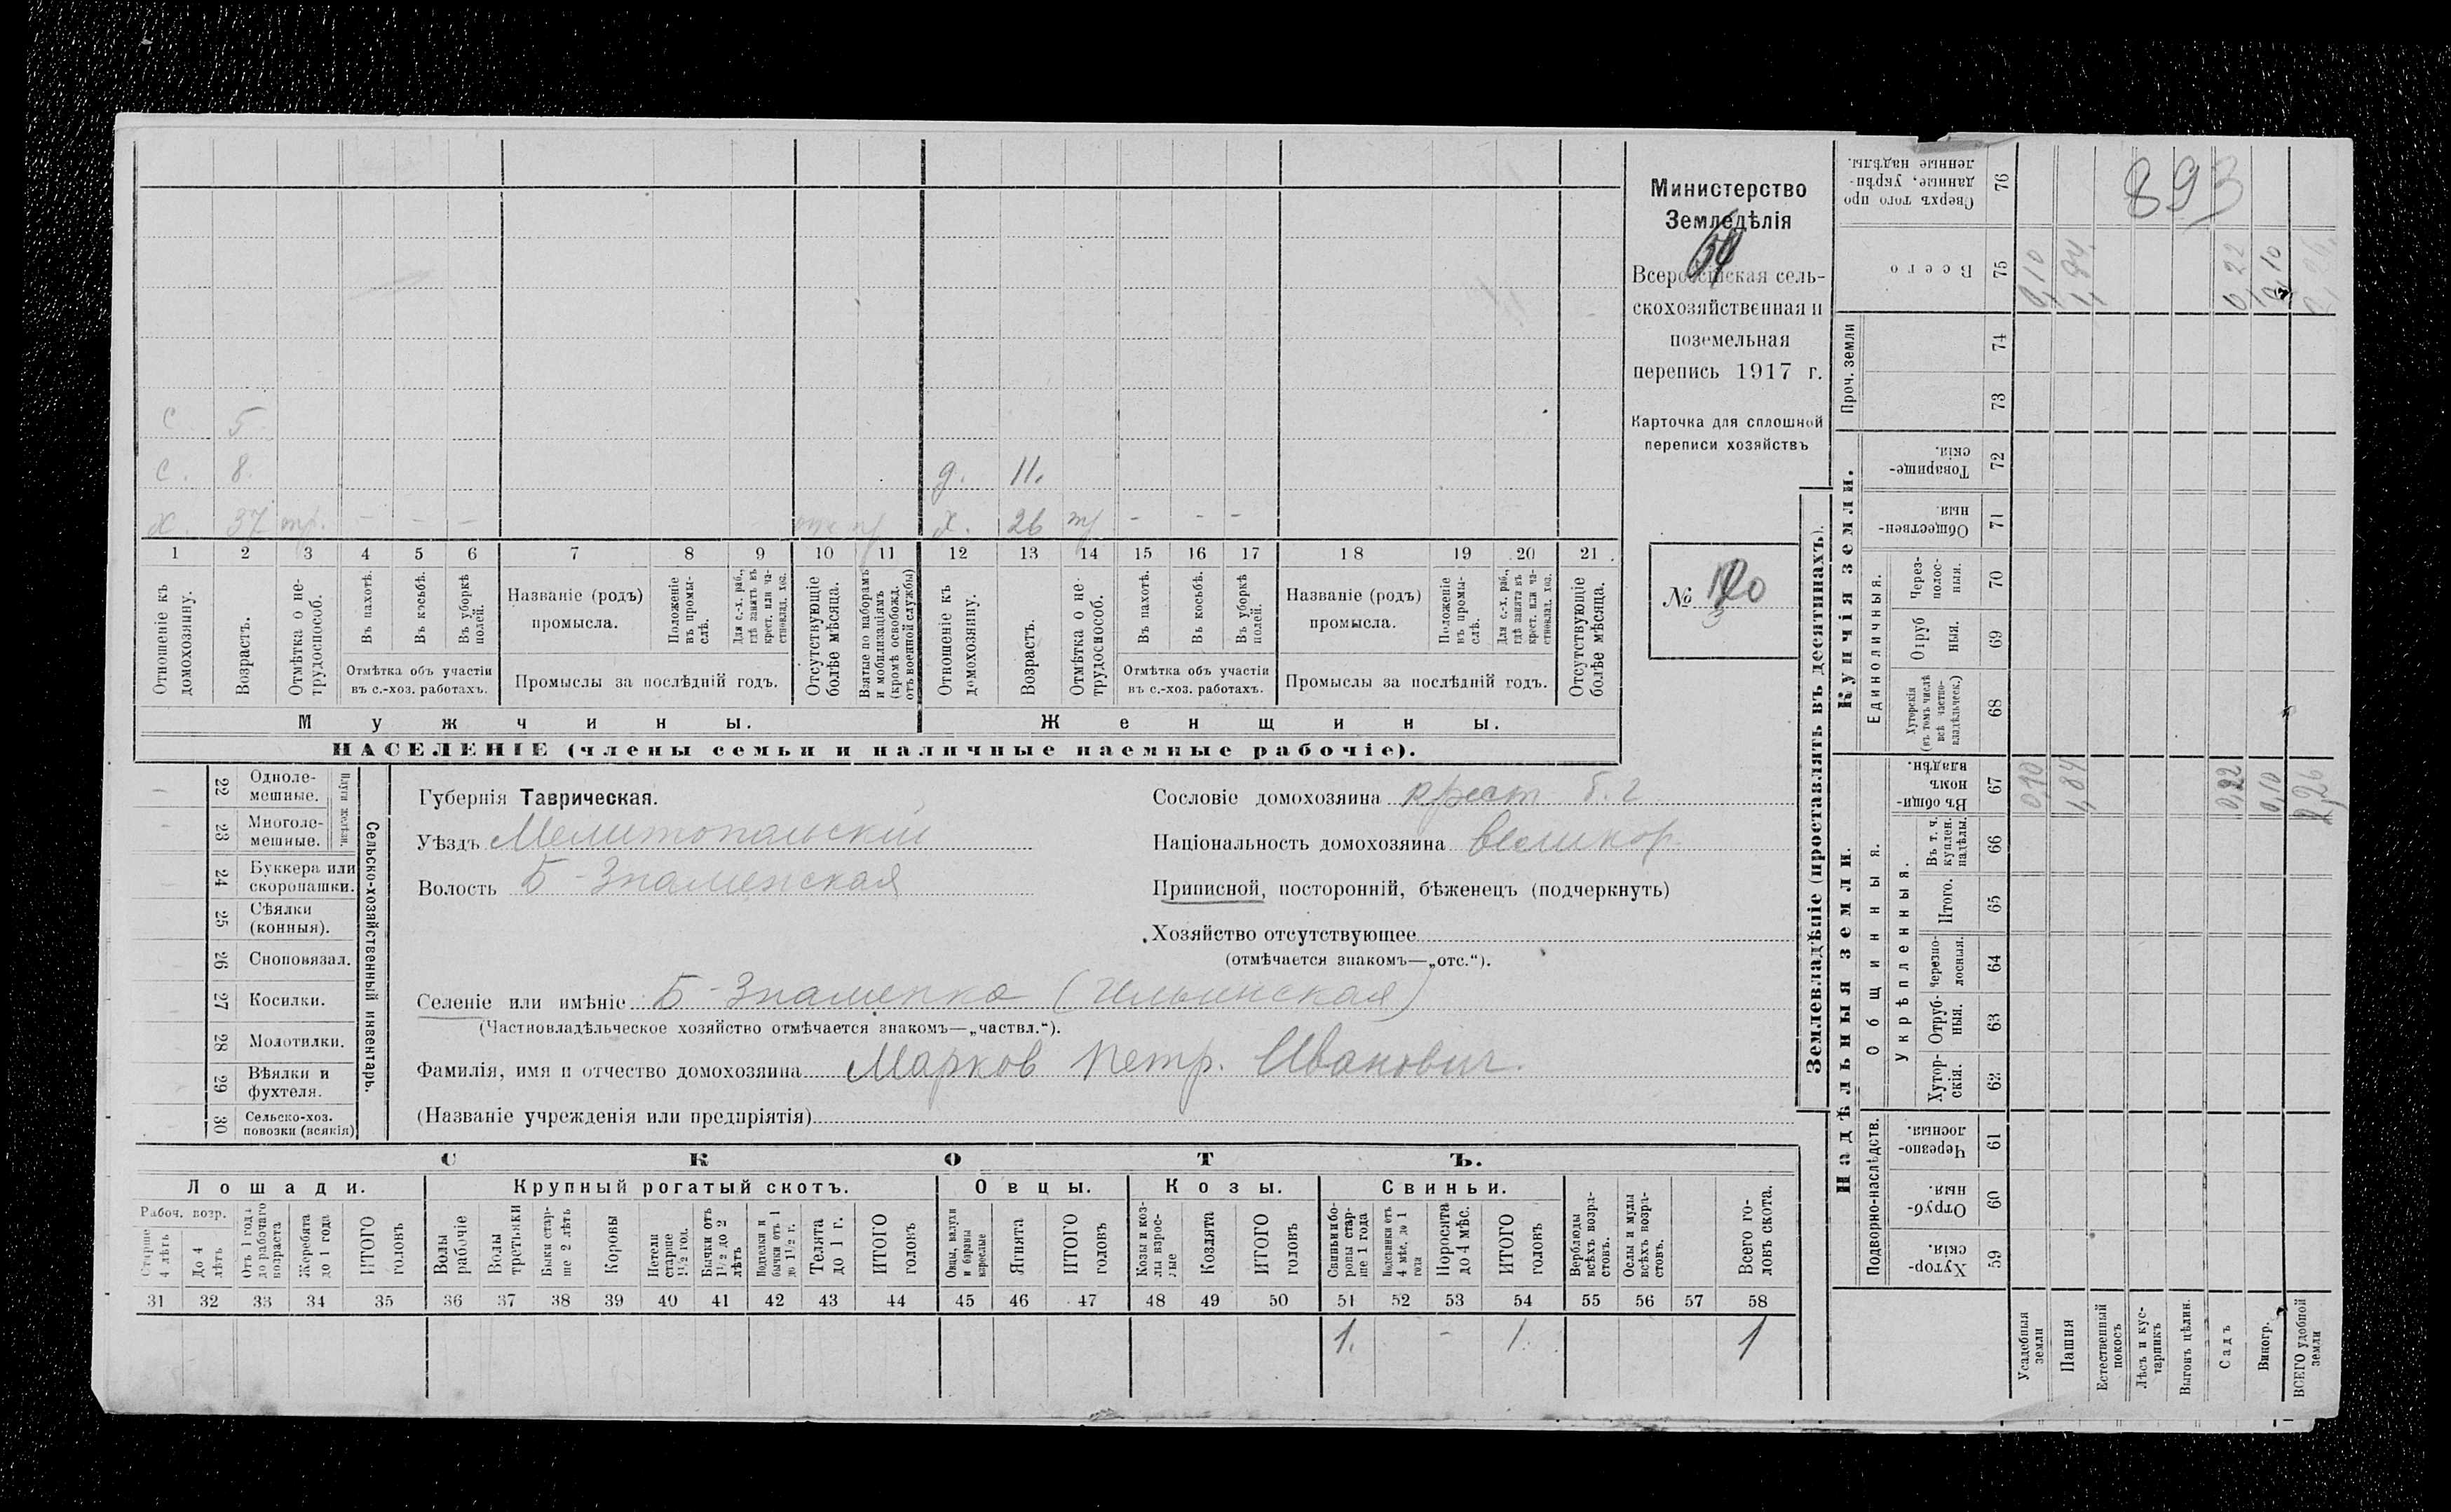 с 5
с. 8. д. 11.
х. 37 тр. – – – х. 26 тр – – –
1 2 3 4 5 6 7 8 9 10 11 12 13 14 15 16 17 18 19 20 21
Отношеніе къ домохозяину.
Возрастъ.
Отмѣтка о не-трудоспособ.
Въ пахотѣ.
Въ косьбѣ.
Въ уборкѣ полей.
Отмѣтка объ участіи
въ с.-хоз. работахъ.
Названіе (родъ)
промысла.
Положеніе въ промы-слѣ.
Для с.-х. раб., гдѣ занятъ въ крест. или ча-стновлад. хоз.
Промыслы за послѣдній годъ.
Отсутствующіе болѣе мѣсяца.
Взятые по наборамъ и мобилизаціямъ (кромѣ освобожд. отъ военной службы)
Отношеніе къ домохозяину.
Возрастъ.
Отмѣтка о не-трудоспособ.
Въ пахотѣ.
Въ косьбѣ.
Въ уборкѣ полей.
Отмѣтка объ участіи
въ с.-хоз. работахъ.
Названіе (родъ)
промысла.
Положеніе въ промы-слѣ.
Для с.-х. раб., гдѣ занята въ крест. или ча-стновлад. хоз.
Промыслы за послѣдній годъ.
Отсутствующіе болѣе мѣсяца.
Мужчины. Женщины.
НАСЕЛЕНІЕ (члены семьи и наличные наемные рабочіе).
Министерство
Земледѣлія
Всероссійская сель-
скохозяйственная и
поземельная
перепись 1917 г.
Карточка для сплошной
переписи хозяйствъ
№
22 Одноле-мешные.
23 Многоле-мешные.
Плуги желѣзн.
24 Буккера или скоропашки.
25 Сѣялки (конныя).
26 Сноповязал.
27 Косилки.
28 Молотилки.
29 Вѣялки и фухтеля.
30 Сельско-хоз. повозки (всякія)
Сельско-хозяйственный инвентарь.
Губернія Таврическая.
Уѣздъ Мелитопольскій
Волость Б-Знаменская
Сословіе домохозяина крест б. г
Національность домохозяина великор.
Приписной, посторонній, бѣженецъ (подчеркнуть)
Хозяйство отсутствующее
(отмѣчается знакомъ—„отс.“).
Селеніе или имѣніе Б-Знаменка (Ильинская)
(Частновладѣльческое хозяйство отмѣчается знакомъ—„частвл.“).
Фамилія, имя и отчество домохозяина Марков Петр. Иванович.
(Названіе учрежденія или предпріятія)
СКОТЪ.
Лошади. Крупный рогатый скотъ. Овцы. Козы. Свиньи.
Рабоч. возр.
Старше 4 лѣтъ
До 4 лѣтъ
Отъ 1 года до рабочаго возраста
Жеребята до 1 года
ИТОГО головъ
Волы рабочіе
Волы третьяки
Быки стар-ше 2 лѣтъ
Коровы
Нетели старше 1½ год.
Бычки отъ 1½ до 2 лѣтъ
Подтелки и бычки отъ 1 до 1½ г.
Телята до 1 г.
ИТОГО головъ
Овцы, валухи и бараны взрослые
Ягнята
ИТОГО головъ
Козы и коз-лы взрос-лые
Козлята
ИТОГО головъ
Свиньи и бо-ровы стар-ше 1 года
Подсвинки отъ 4 мѣс. до 1 года
Поросята до 4 мѣс.
ИТОГО головъ
Верблюды всѣхъ возра-стовъ.
Ослы и мулы всѣхъ возра-стовъ.
Всего го-ловъ скота.
31 32 33 34 35 36 37 38 39 40 41 42 43 44 45 46 47 48 49 50 51 52 53 54 55 56 57 58
1. - 1. 1
Землевладѣніе (проставлять въ десятинахъ).
Надѣльныя земли.
Купчія земли.
Проч. земли
Подворно-наслѣдств.
Общинныя.
Укрѣпленныя.
Единоличныя.
Сверхъ того про-данные, укрѣп-ленные надѣлы. 76
893
Всего 75 0,10 1,84. 0,22 0,10 2,26.
74
73
Товарище-скія. 72
Обществен-ныя. 71
Через-полос-ныя. 70
Отруб-ныя. 69
Хуторскія (въ томъ числѣ всѣ частно-владѣльческ.) 68
Въ общи-номъ владѣн. 67 0,10 1,84 0,22 0,10 2,26
Въ т. ч. куплен. надѣлы. 66
Итого. 65
черезпо-лосныя. 64
Отруб-ныя. 63
Хутор-скія. 62
Черезпо-лосныя. 61
Отруб-ныя. 60
Хутор-скія. 59
Усадебныя земли
Пашня
Естественный покосъ
Лѣсъ и кус-тарникъ
Выгонъ цѣлин.
Садъ
Виногр.
ВСЕГО удобной земли